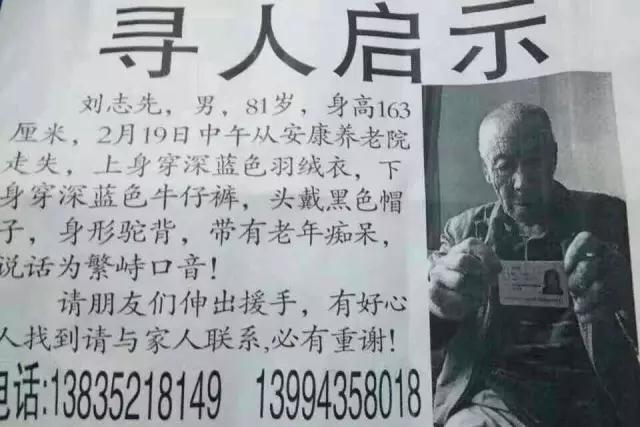 寻人启示
刘志先，男，81岁，身高163
厘米，2月19日中午从安康养老院
走失，上身穿深蓝色羽绒衣，下
身穿深蓝色牛仔裤，头戴黑色帽
子，身形驼背，带有老年痴呆，
说话为繁峙口音！
请朋友们伸出援手，有好心
人找到请与家人联系,必有重谢!
电话:13835218149 13994358018